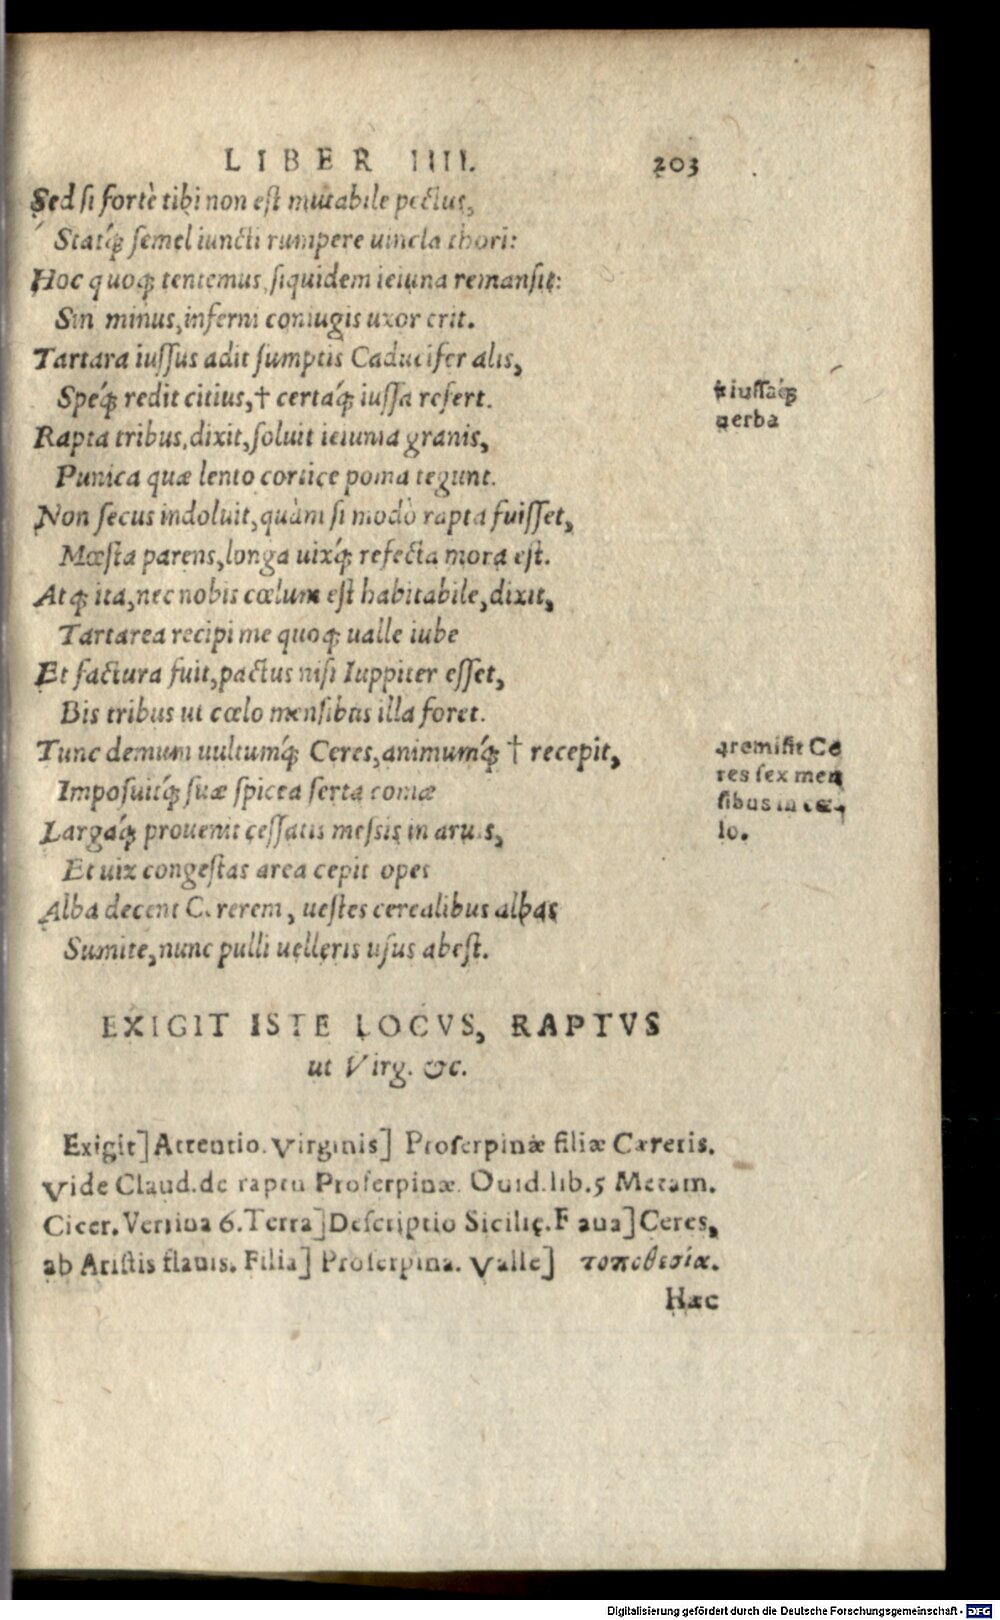 LIBER IIII. 203
Sed si fortè tibi non est mutabile pectus,
Statq́; semel iuncti rumpere uincla thori:
Hoc quoq; tentemus, siquidem ieiuna remansit:
Sin minus, inferni coniugis uxor erit.
Tartara iussus adit sumptis Caducifer alis,
Speq́; redit citius, † certaq́; iussa refert.
† iussaq́;
uerba
Rapta tribus, dixit, soluit ieiunia granis,
Punica quæ lento cortice poma tegunt.
Non secus indoluit, quàm si modò rapta fuisset,
Mœsta parens, longa uixq́; refecta mora est.
Atq; ita, nec nobis cœlum est habitabile, dixit,
Tartarea recipi me quoq; ualle iube
Et factura fuit, pactus nisi Iuppiter esset,
Bis tribus ut cœlo mensibus illa foret.
Tunc demum uultumq́; Ceres, animumq́; † recepit,
Imposuitq́; suæ spicea serta comæ
remisit Ce
res sex men
sibus in cœ-
lo.
Largaq́; prouenit cessatis messis in aruis,
Et uix congestas area cepit opes
Alba decent Cererem, uestes cerealibus albas
Sumite, nunc pulli uelleris usus abest.
EXIGIT ISTE LOCVS, RAPTVS
ut Virg. &c.
Exigit] Attentio. Virginis] Proserpinæ filiæ Cæreris.
Vide Claud. de raptu Proserpinæ. Ouid. lib. 5 Metam.
Cicer. Verrina 6. Terra] Descriptio Sicilię. Flaua] Ceres,
ab Aristis flauis. Filia] Proserpina. Valle] τοποθεσία.
Hæc
Digitalisierung gefördert durch die Deutsche Forschungsgemeinschaft - DFG